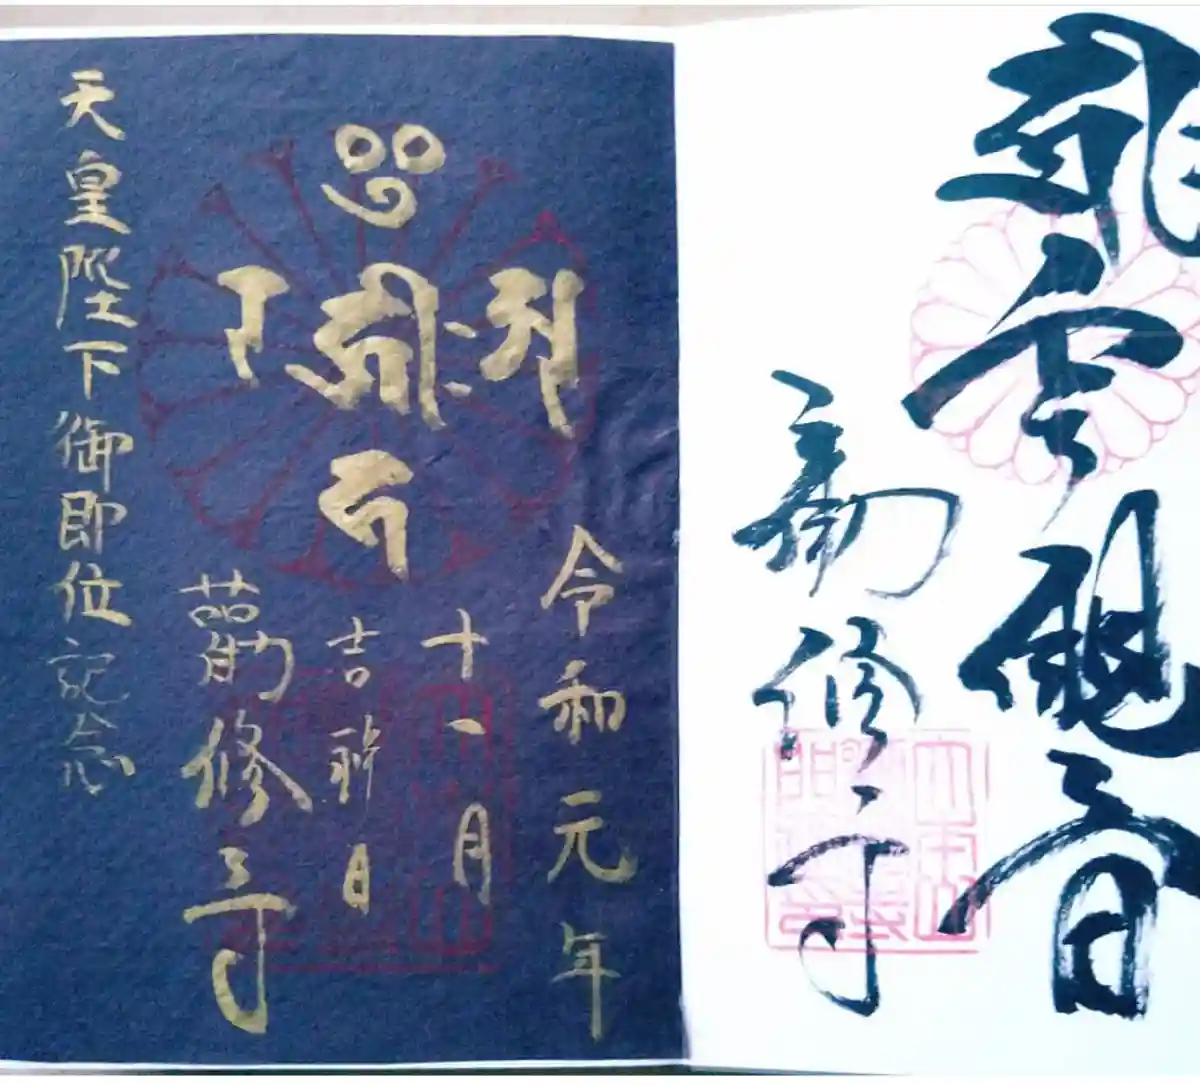 雲観音
勧修寺
大本山
令和元年
十一月
吉祥日
勧修寺
天皇陛下御即位記念